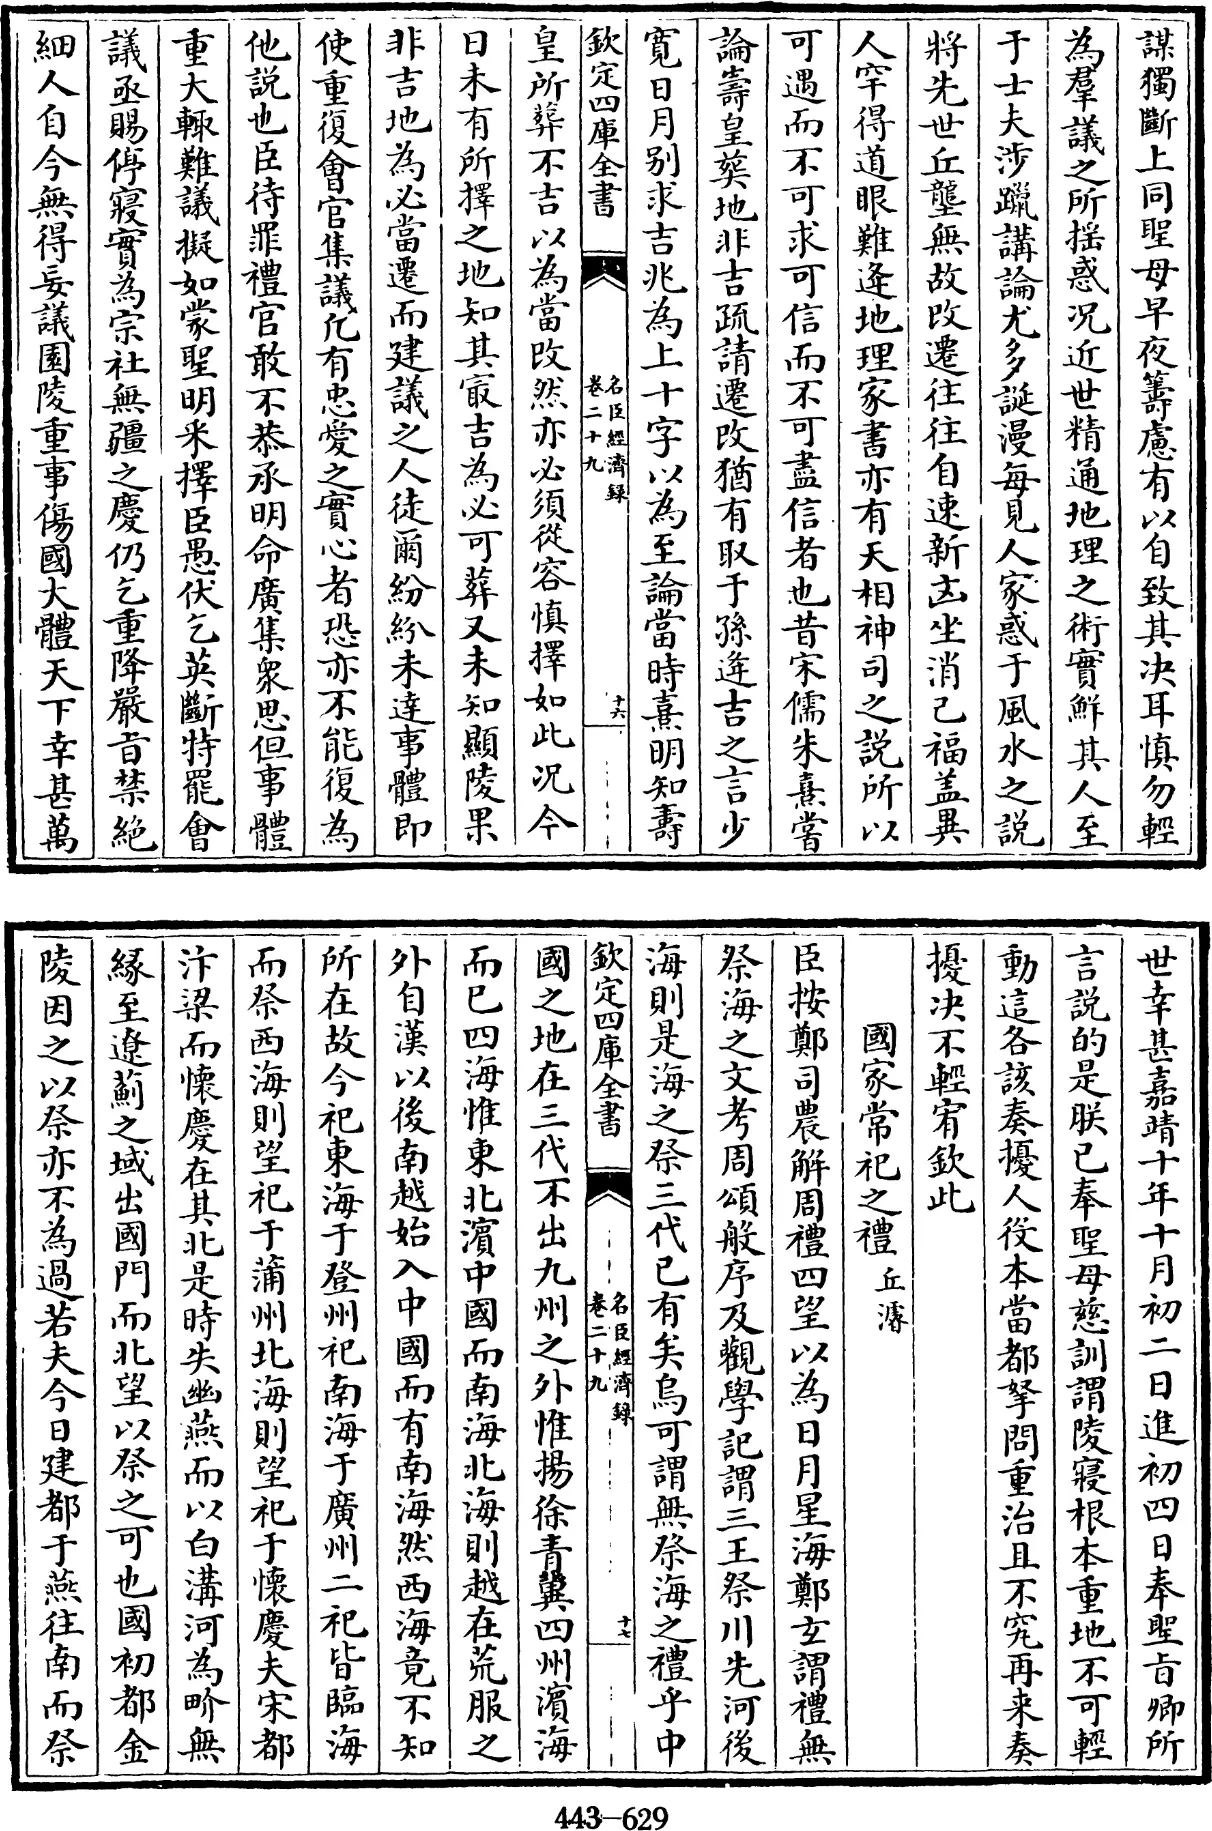 謀獨斷上同聖母早夜籌慮有以自致其决耳慎勿輕
為羣議之所揺惑况近世精通地理之術實鮮其人至
于士夫涉躐講論尤多誕漫每見人家惑于風水之説
將先世丘壟無故改遷往往自速新凶坐消己福盖異
人罕得道眼難逢地理家書亦有天相神司之説所以
可遇而不可求可信而不可盡信者也昔宋儒朱熹嘗
論壽皇葬地非吉疏請遷改猶有取于孫逄吉之言少
寛日月别求吉兆為上十字以為至論當時熹明知壽
欽定四庫全書
名臣經濟録
卷二十九
十六
皇所葬不吉以為當改然亦必須從容慎擇如此况今
日未有所擇之地知其㝡吉為必可葬又未知顯陵果
非吉地為必當遷而建議之人徒爾紛紛未逹事體即
使重復會官集議凡有忠愛之實心者恐亦不能復為
他説也臣待罪禮官敢不恭承明命廣集衆思但事體
重大輙難議擬如蒙聖明采擇臣愚伏乞英斷特罷會
議亟賜停寢實為宗社無疆之慶仍乞重降嚴旨禁絶
細人自今無得妄議園陵重事傷國大體天下幸甚萬
世幸甚嘉靖十年十月初二日進初四日奉聖旨卿所
言説的是朕已奉聖母慈訓謂陵寢根本重地不可輕
動這各該奏擾人役本當都拏問重治且不究再来奏
擾决不輕宥欽此
國家常祀之禮 丘濬
臣按鄭司農解周禮四望以為日月星海鄭玄謂禮無
祭海之文考周頌般序及觀學記謂三王祭川先河後
海則是海之祭三代已有矣烏可謂無祭海之禮乎中
欽定四庫全書
名臣經濟録
卷二十九
十七
國之地在三代不出九州之外惟揚徐青冀四州濱海
而已四海惟東北濱中國而南海北海則越在荒服之
外自漢以後南越始入中國而有南海然西海竟不知
所在故今祀東海于登州祀南海于廣州二祀皆臨海
而祭西海則望祀于蒲州北海則望祀于懷慶夫宋都
汴梁而懷慶在其北是時失幽燕而以白溝河為界無
縁至遼薊之域出國門而北望以祭之可也國初都金
陵因之以祭亦不為過若夫今日建都于燕往南而祭
443-629